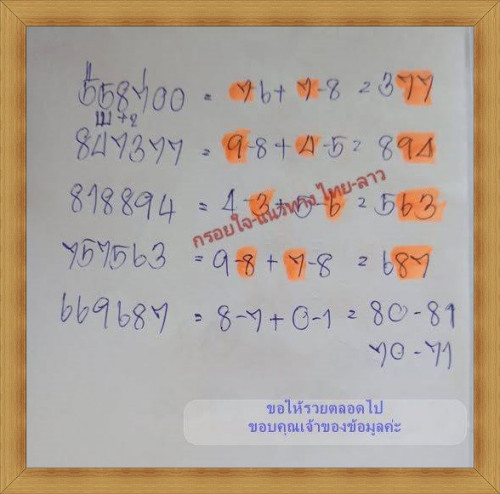 558700 = 76+7-8 = 377
111+2
847377 = 9-8+4-5= 894
818894 = 4-3+5-6 = 563
กรอบใจ-แนวทาง ไทย-ลาว
757563 = 9-8+7-8 = 687
669687 = 8-7+0-1 = 80-81
70-71
ขอให้รวยตลอดไป
ขอบคุณเจ้าของข้อมูลค่ะ